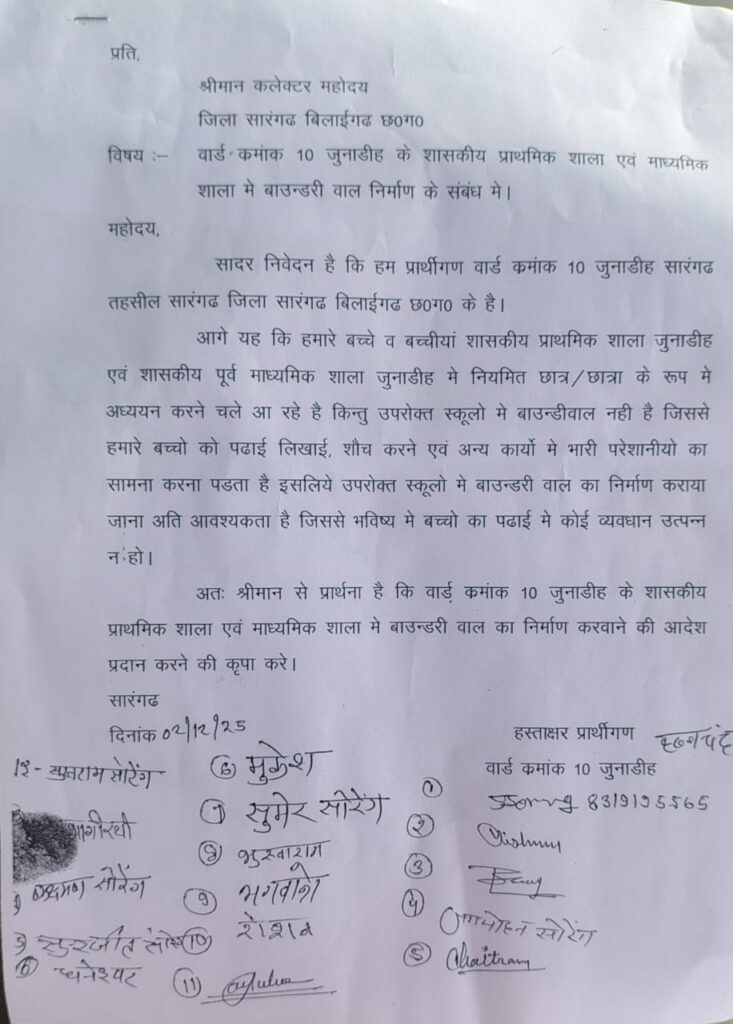 प्रति,
श्रीमान कलेक्टर महोदय
जिला सारंगढ बिलाईगढ छ0ग0
विषय :– वार्ड कमांक 10 जुनाडीह के शासकीय प्राथमिक शाला एवं माध्यमिक
शाला मे बाउन्डरी वाल निर्माण के संबंध मे।
महोदय,
सादर निवेदन है कि हम प्रार्थीगण वार्ड कमांक 10 जुनाडीह सारंगढ
तहसील सारंगढ जिला सारंगढ बिलाईगढ छ0ग0 के है।
आगे यह कि हमारे बच्चे व बच्चीयां शासकीय प्राथमिक शाला जुनाडीह
एवं शासकीय पूर्व माध्यमिक शाला जुनाडीह मे नियमित छात्र/छात्रा के रूप मे
अध्ययन करने चले आ रहे है किन्तु उपरोक्त स्कूलो मे बाउन्डीवाल नही है जिससे
हमारे बच्चो को पढाई लिखाई, शौच करने एवं अन्य कार्यो मे भारी परेशानीयो का
सामना करना पडता है इसलिये उपरोक्त स्कूलो मे बाउन्डरी वाल का निर्माण कराया
जाना अति आवश्यकता है जिससे भविष्य मे बच्चो का पढाई मे कोई व्यवधान उत्पन्न
न हो।
अतः श्रीमान से प्रार्थना है कि वार्ड़ कमांक 10 जुनाडीह के शासकीय
प्राथमिक शाला एवं माध्यमिक शाला मे बाउन्डरी वाल का निर्माण करवाने की आदेश
प्रदान करने की कृपा करे।
सारंगढ
दिनांक 02/12/25
हस्ताक्षर प्रार्थीगण
वार्ड कमांक 10 जुनाडीह
① 8319195565
②
③
④ सोरेंग
⑤ Chaitram
⑥ मुकेश
⑦ सुमेर सोरेंग
⑧ भुखाराम
⑨
⑩
⑪
सोरेंग
भागीरथी
सोरेंग
धनेश्वर